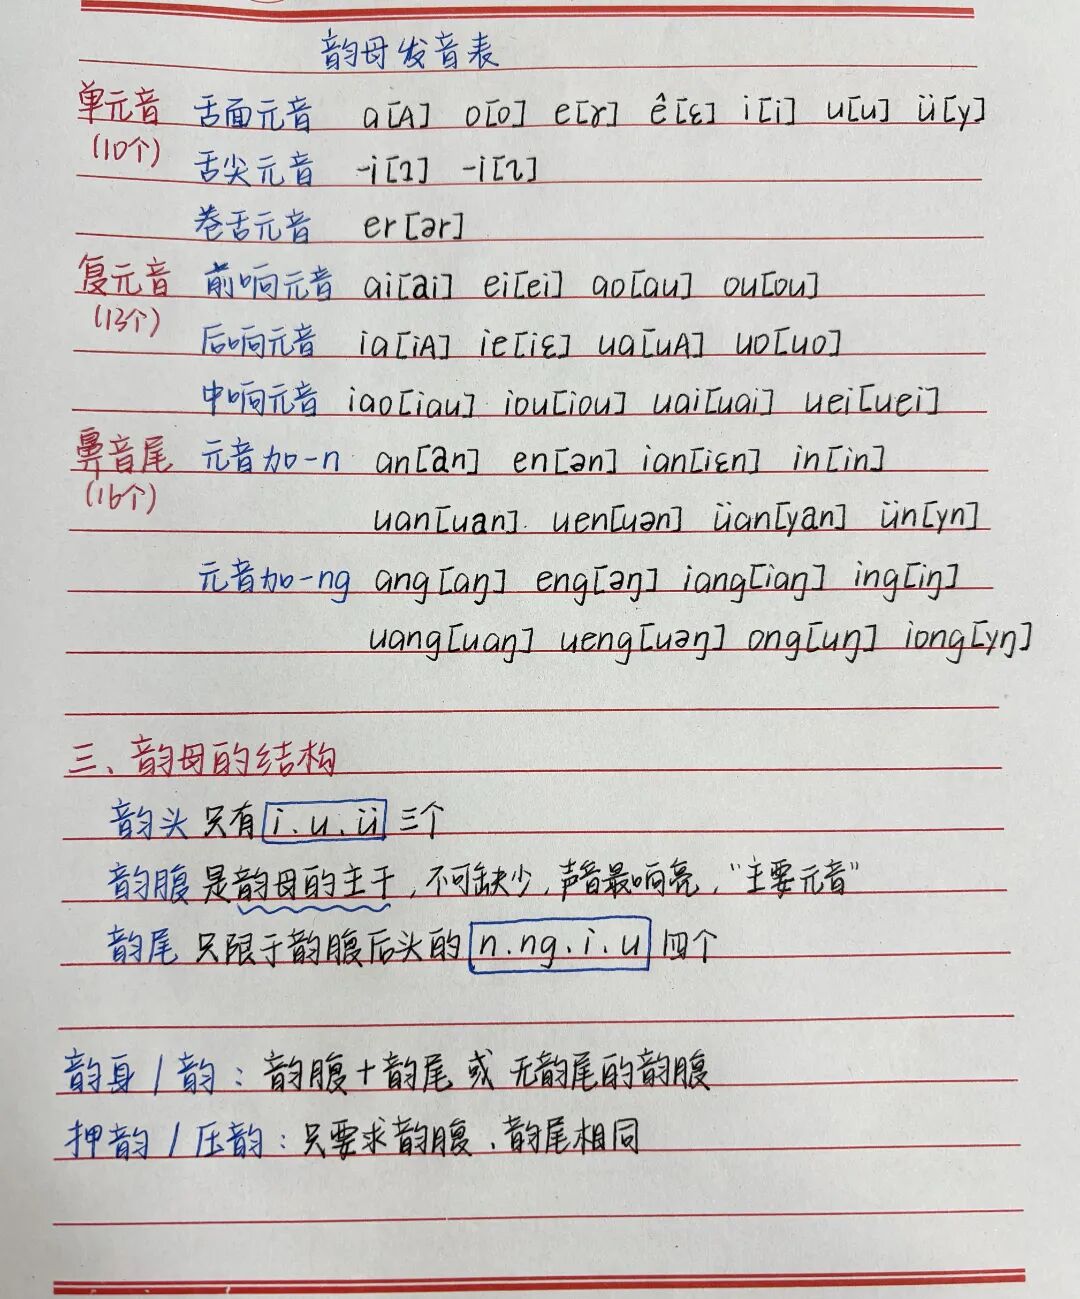 韵母发音表
单元音 舌面元音 a[A] o[o] e[ɤ] ê[ɛ] i[i] u[u] ü[y]
(10个)
舌尖元音 -i[ɿ] -i[ʅ]
卷舌元音 er[ər]
复元音 前响元音 ai[ai] ei[ei] ao[ɑu] ou[ou]
(13个)
后响元音 ia[iA] ie[iɛ] ua[uA] uo[uo]
中响元音 iao[iɑu] iou[iou] uai[uai] uei[uei]
鼻音尾 元音加-n an[an] en[ən] ian[iɛn] in[in]
(16个)
uan[uan] uen[uən] üan[yan] ün[yn]
元音加-ng ang[ɑŋ] eng[əŋ] iang[iɑŋ] ing[iŋ]
uang[uɑŋ] ueng[uəŋ] ong[uŋ] iong[yŋ]
三、韵母的结构
韵头 只有 i.u.ü 三个
韵腹 是韵母的主干,不可缺少,声音最响亮,“主要元音”
韵尾 只限于韵腹后头的 n.ng.i.u 四个
韵身/韵:韵腹+韵尾 或 无韵尾的韵腹
押韵/压韵:只要求韵腹、韵尾相同